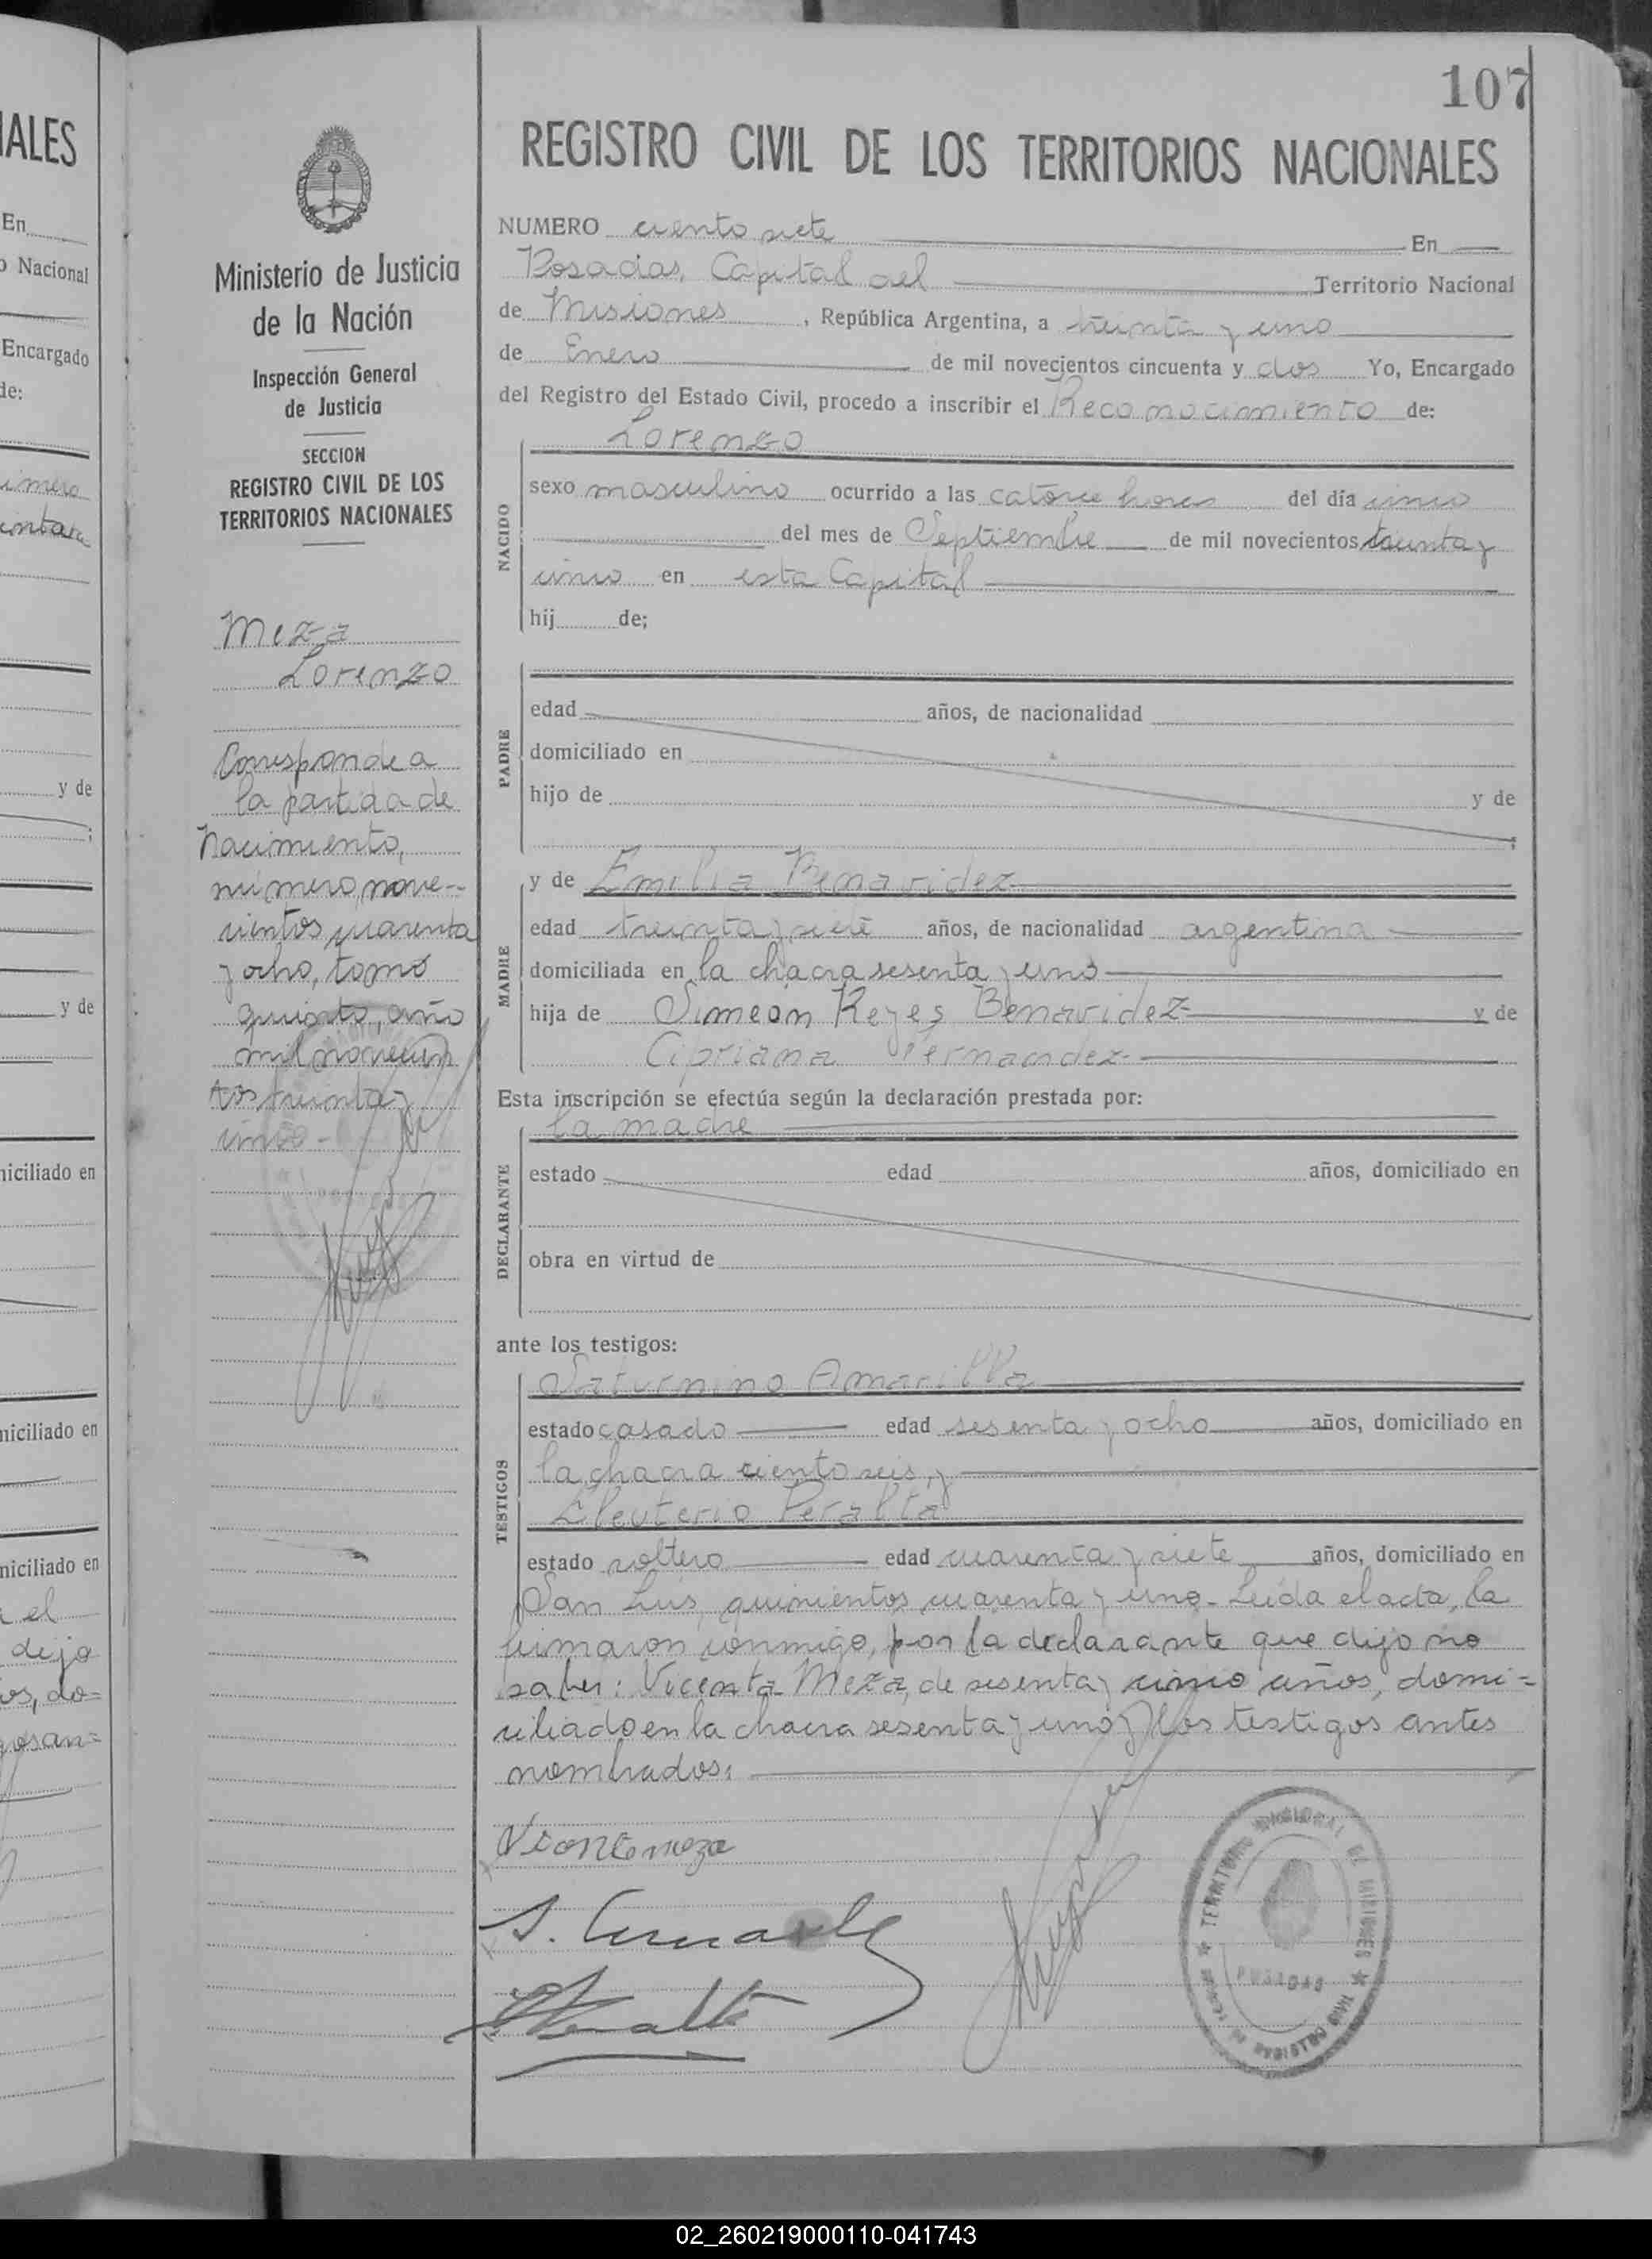 107
REGISTRO CIVIL DE LOS TERRITORIOS NACIONALES
NUMERO ciento siete En
Posadas, Capital del Territorio Nacional
de Misiones, República Argentina, a treinta y uno
de Enero de mil novecientos cincuenta y dos Yo, Encargado
del Registro del Estado Civil, procedo a inscribir el Reconocimiento de:
Lorenzo
NACIDO
sexo masculino ocurrido a las catorce horas del día cinco
del mes de Septiembre de mil novecientos treinta y
cinco en esta Capital
hij de;
PADRE
edad años, de nacionalidad
domiciliado en
hijo de y de
;
MADRE
y de Emilia Benavidez
edad treinta y siete años, de nacionalidad argentina
domiciliada en la chacra sesenta y uno
hija de Simeón Reyes Benavidez y de
Cipriana Fernandez
Esta inscripción se efectúa según la declaración prestada por:
la madre
DECLARANTE
estado edad años, domiciliado en
obra en virtud de
ante los testigos:
TESTIGOS
Saturnino Amarilla
estado casado edad sesenta y ocho años, domiciliado en
la chacra ciento seis, y
Eleuterio Peralta
estado soltero edad cuarenta y siete años, domiciliado en
San Luis, quinientos cuarenta y uno - Leída el acta, la
firmaron conmigo, por la declarante que dijo no
saber: Vicenta Meza, de sesenta y cinco años, domi=
ciliado en la chacra sesenta y uno y los testigos antes
nombrados:
TERRITORIO NACIONAL DE MISIONES
POSADAS
Ministerio de Justicia
de la Nación
Inspección General
de Justicia
SECCION
REGISTRO CIVIL DE LOS
TERRITORIOS NACIONALES
Meza
Lorenzo
Corresponde a
la partida de
Nacimiento,
número, nove--
cientos cuarenta
y ocho, tomo
quinto, año
mil novecien
tos treinta y
cinco -
IALES
En
o Nacional
Encargado
de:
y de
y de
niciliado en
niciliado en
niciliado en
el
dijo
os, do=
02_260219000110-041743